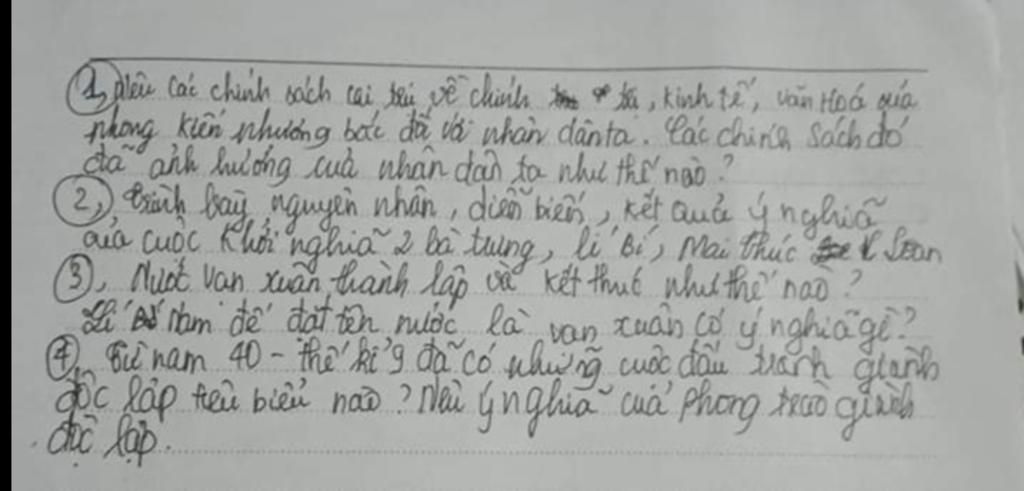 1, Nêu các chính sách cai trị về chính trị, kinh tế, văn Hoá của
phong kiến phương bắc đối với nhân dân ta. Các chính sách đó
đã ảnh hưởng của nhân dân ta như thế nào?
2, trình bày nguyên nhân, diễn biến, kết quả ý nghĩa
của cuộc khởi nghĩa 2 bà trưng, lí Bí, Mai thúc Loan
3, Nước vạn xuân thành lập và kết thúc như thế nào?
Lí Nam đế đặt tên nước là vạn xuân có ý nghĩa gì?
4, Từ năm 40 - thế kỉ 9 đã có những cuộc đấu tranh giành
độc lập tiêu biểu nào? Nêu ý nghĩa của phong trào giành
độc lập.